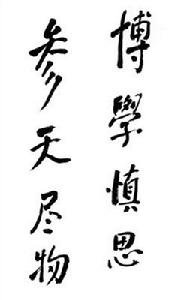 博學慎思
参天尽物